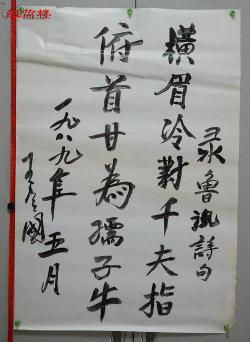 录鲁迅詩句
橫眉冷對千夫指
俯首甘為孺子牛
一九八九年五月